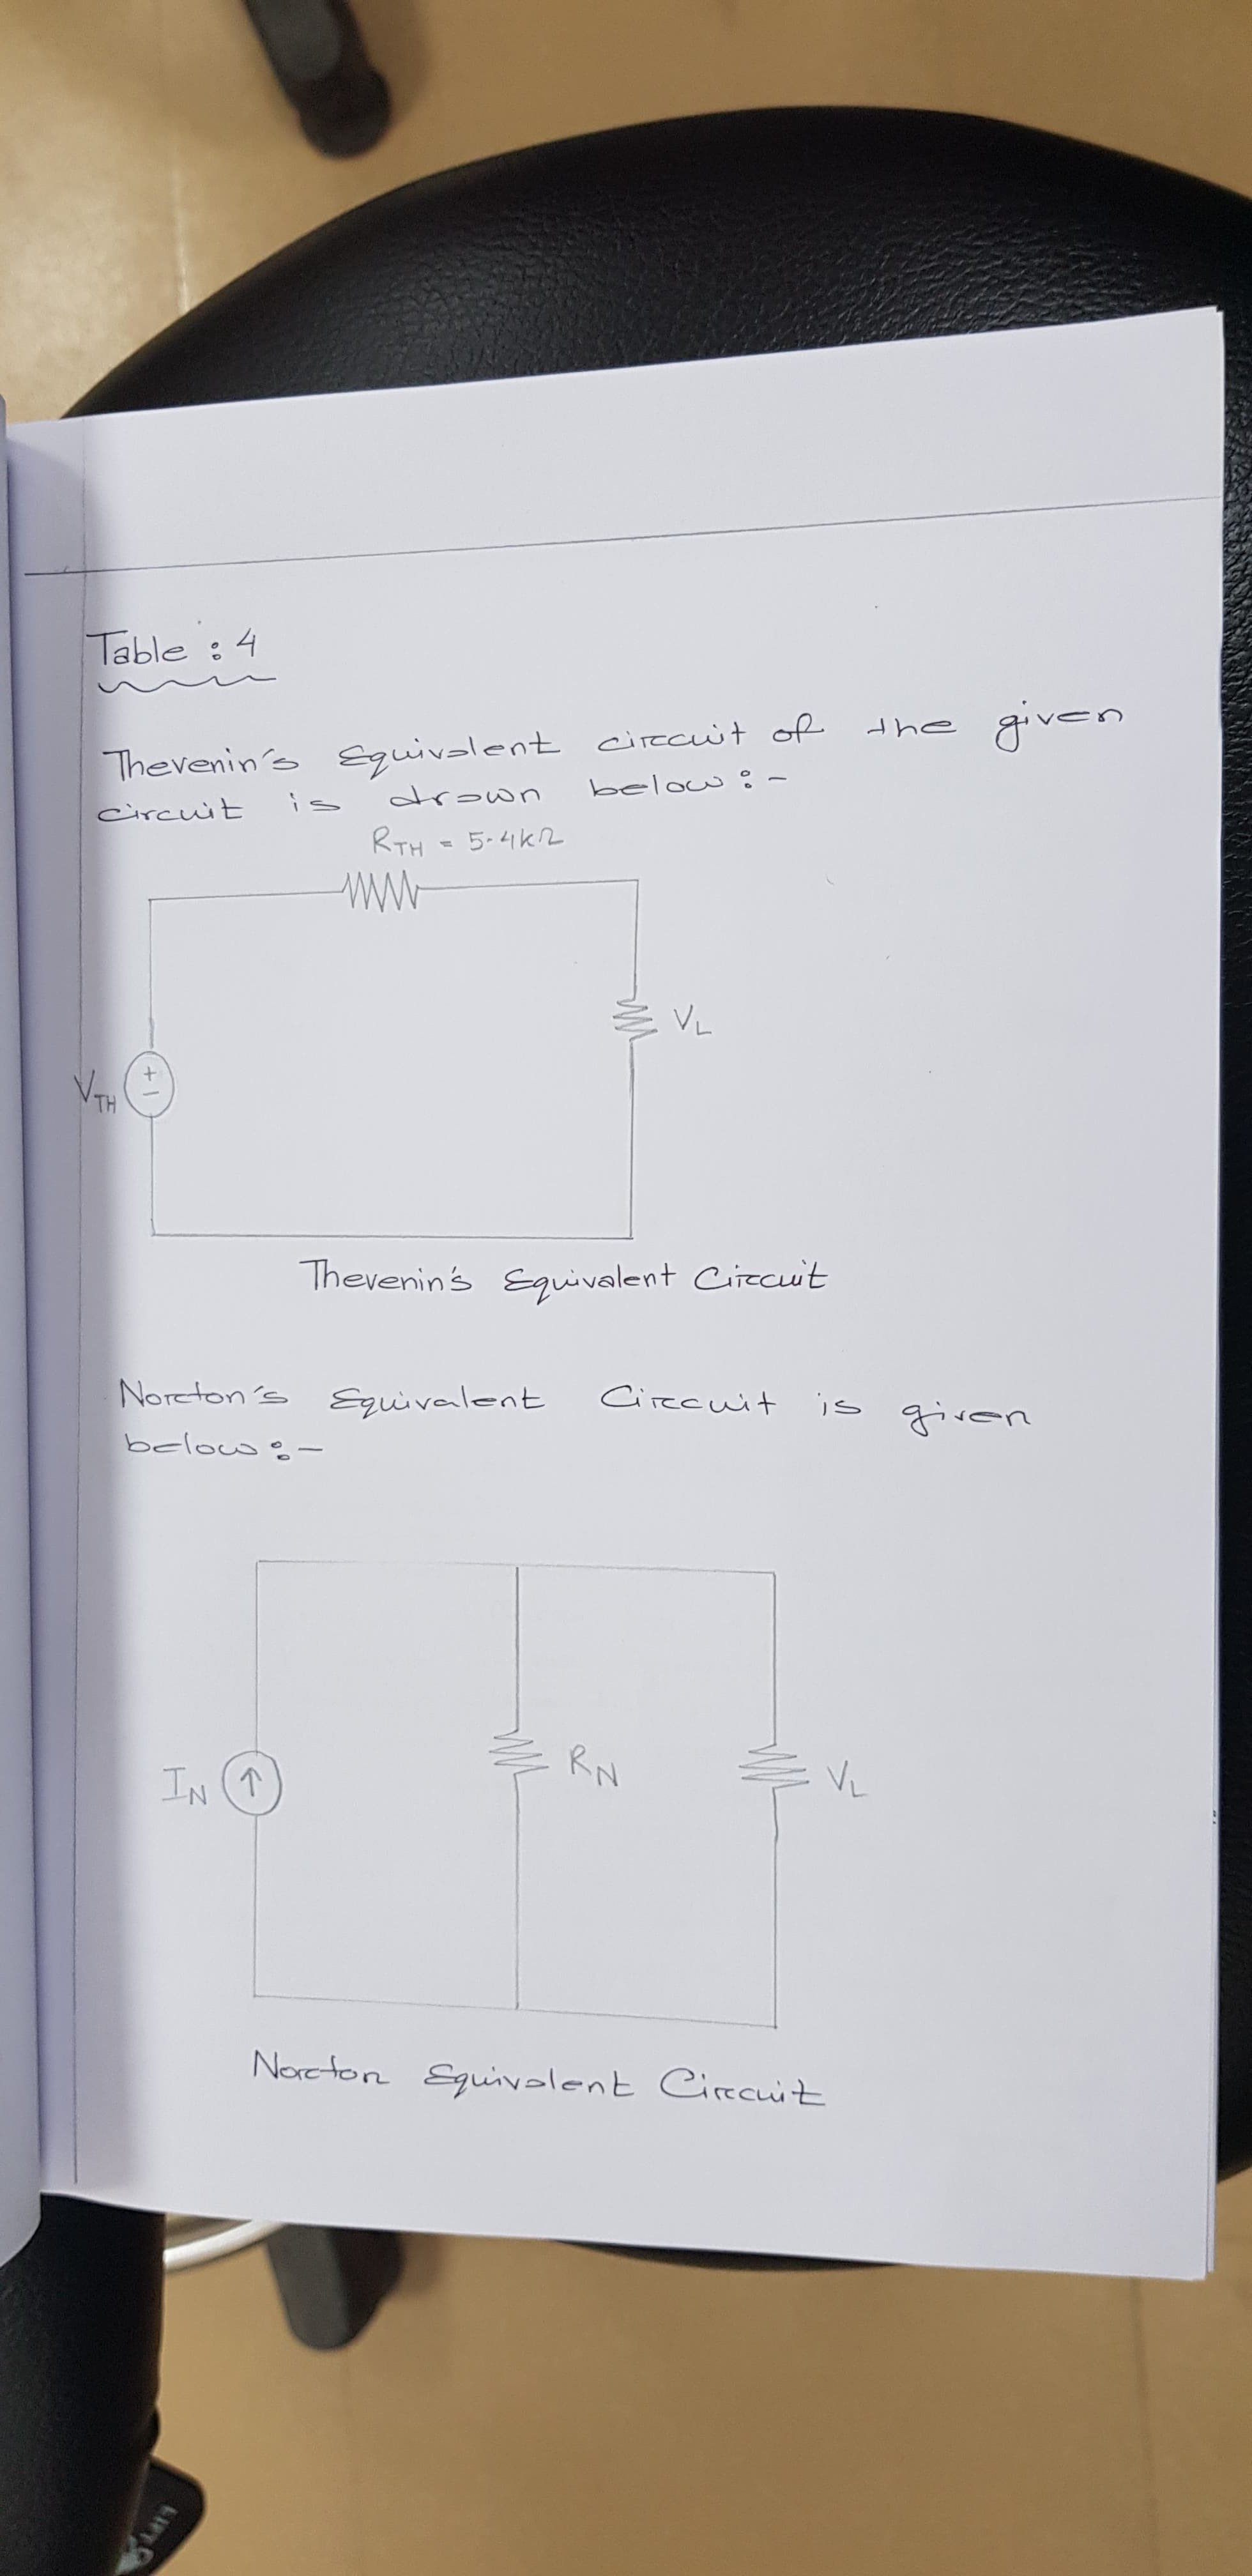 Table : 4
Thevenin's Equivalent circuit of the given
circuit is drawn below :-
RTH = 5.4kΩ
VL
+
-
VTH
Thevenin's Equivalent Circuit
Norton's Equivalent Circuit is given
below :-
IN
RN
VL
Norton Equivalent Circuit